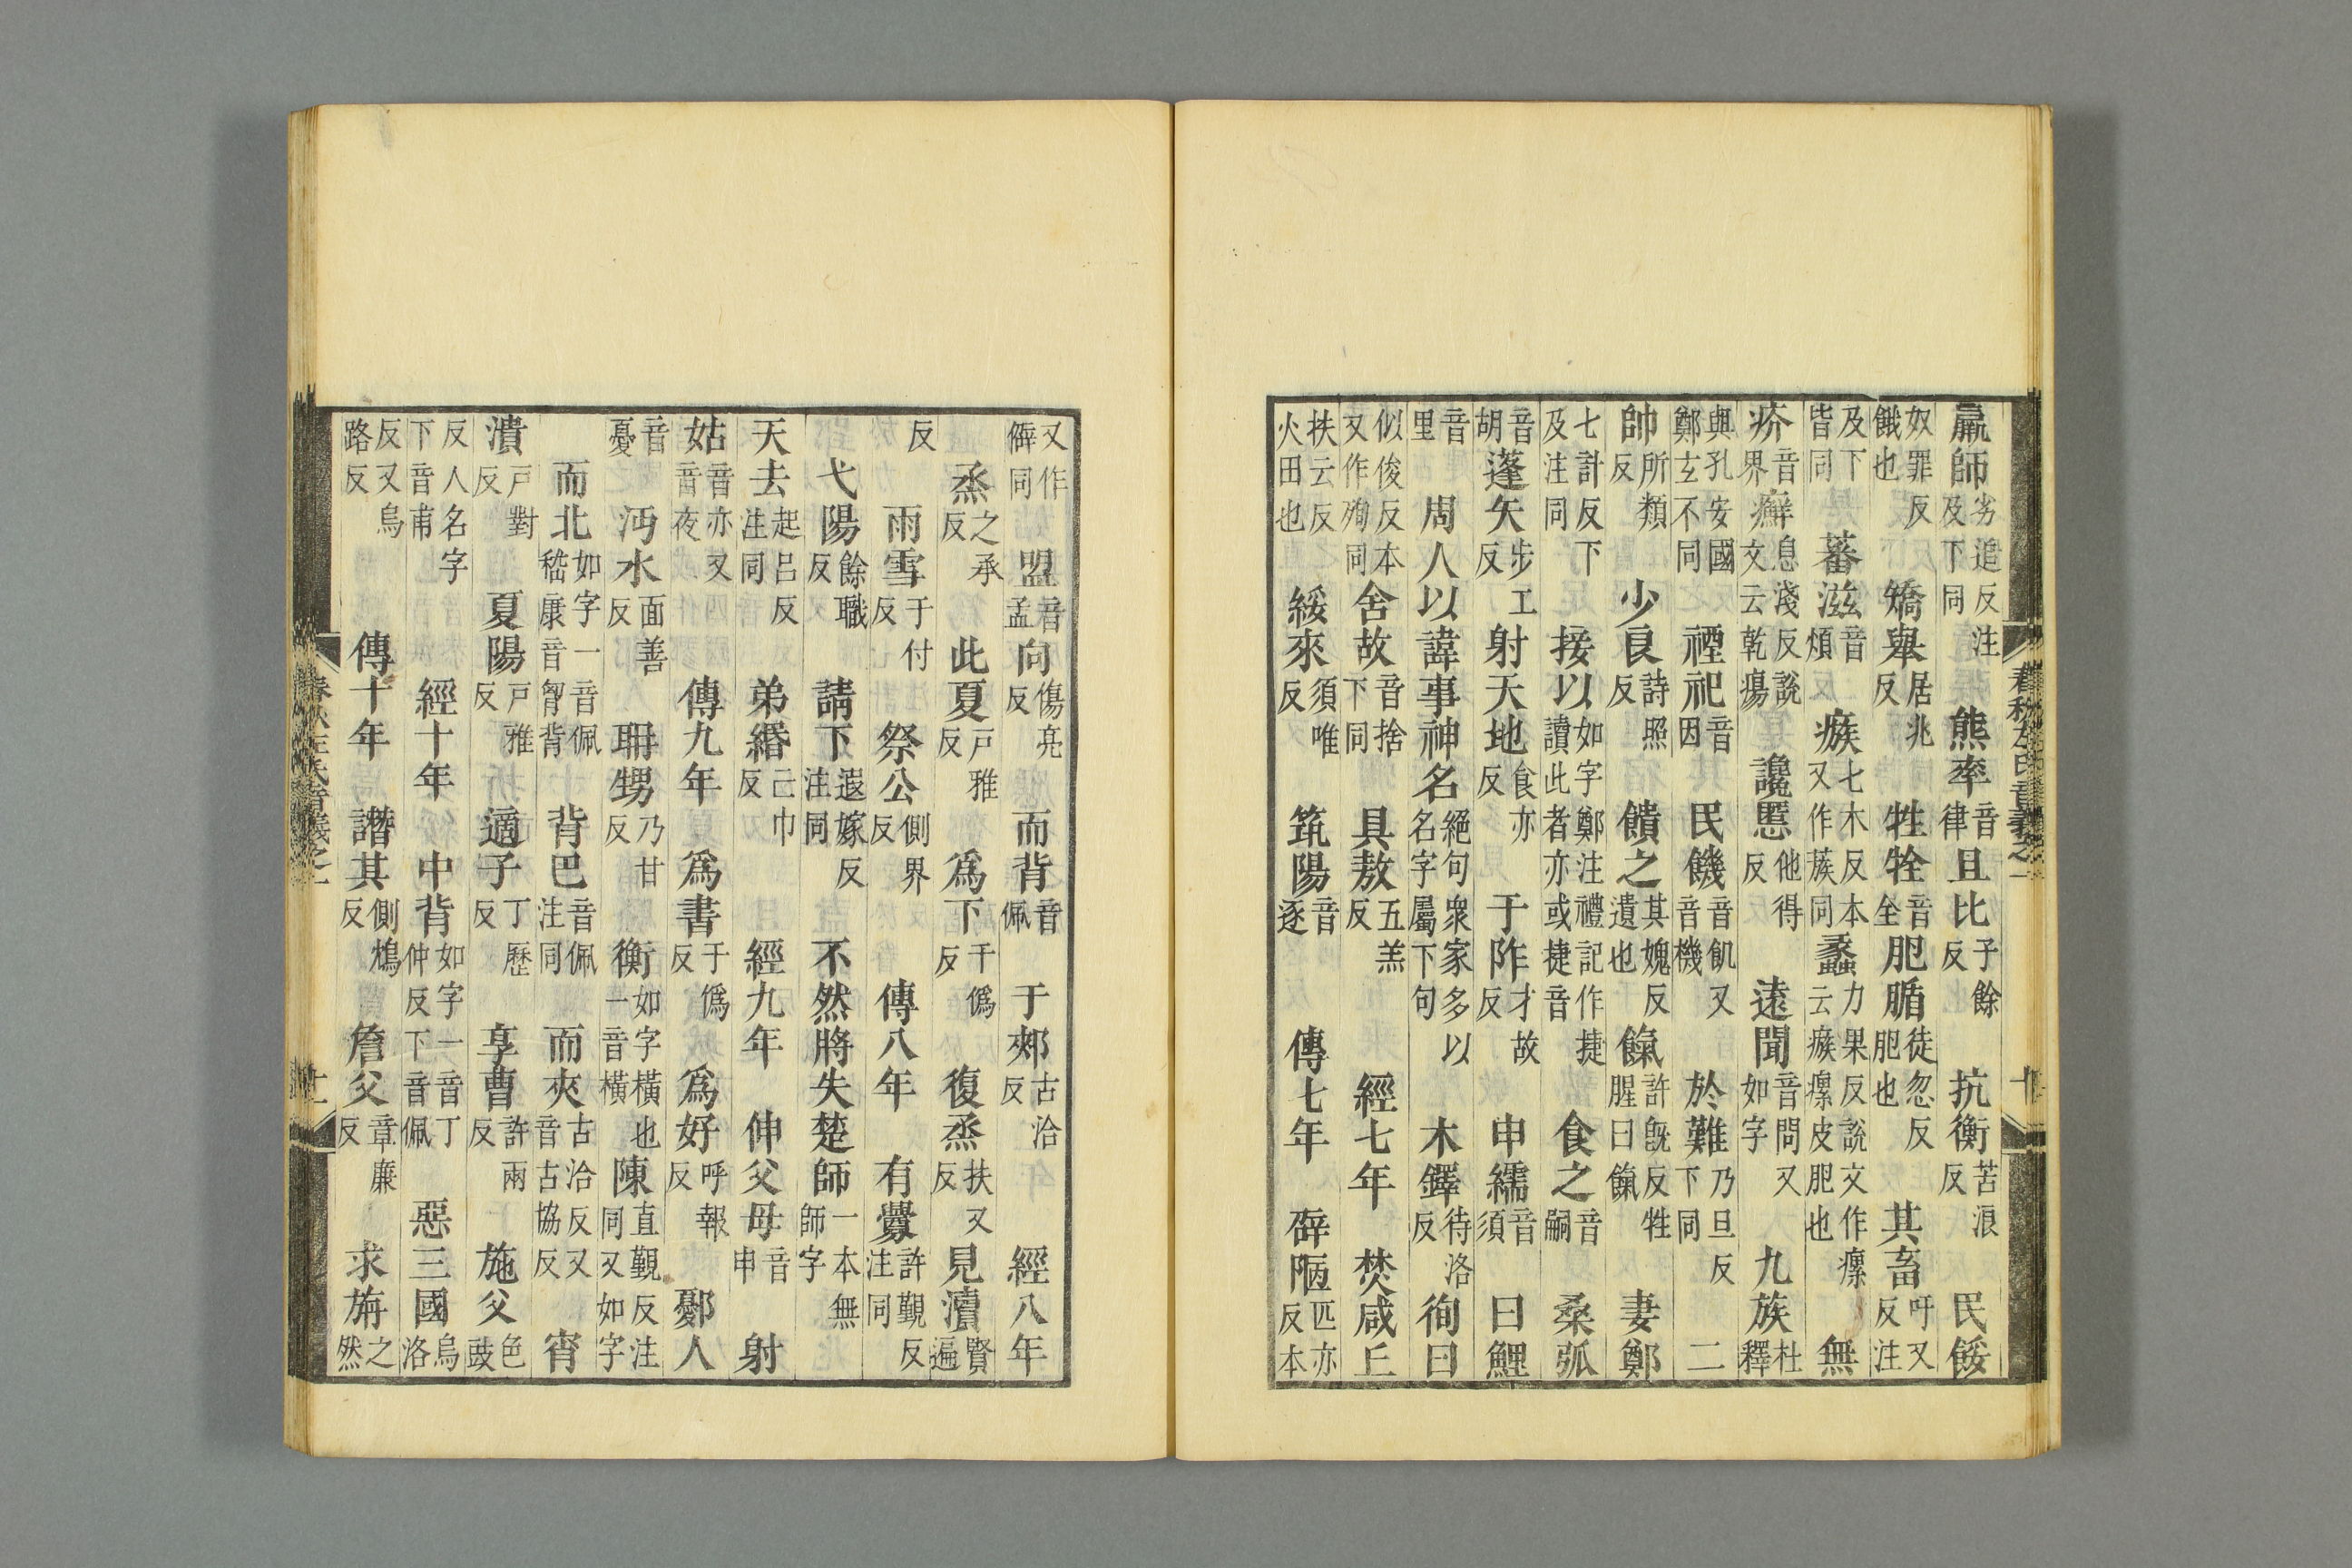 春秋左氏音義之一　十
羸師劣追反注及下同　熊率音律且比子餘反　抗衡苦浪反　民餒
奴罪反餓也　矯舉居兆反　牲牷音全肥腯徒忽反肥也　其畜吁又反注
及下皆同　蕃滋音煩　瘯七木反本又作蔟同蠡力果反說文作瘰云瘯瘰皮肥也　無
疥音界癬息淺反說文云乾瘍　讒慝他得反　遠聞音問又如字　九族杜釋
與孔安國鄭玄不同　禋祀音因　民饑音飢又音機　於難乃旦反下同　二
帥所類反　少良詩照反　饋之其媿反遺也餼許旣反牲腥曰餼　妻鄭
七計反下及注同　接以如字鄭注禮記作捷讀此者亦或捷音　食之音嗣　桑弧
音胡蓬矢步工反射天地食亦反　于阼才故反　申繻音須　曰鯉
音里　周人以諱事神名絕句衆家多以名字屬下句　木鐸待洛反徇曰
似俊反本又作殉同舍故音捨下同　具敖五羔反　經七年　焚咸丘
扶云反火田也　綏來須唯反　筑陽音逐　傳七年　辟陋匹亦反本
又作僻同　盟音孟向傷亮反　而背音佩　于郟古洽反　經八年
烝之承反　此夏戶雅反　爲下于僞反　復烝扶又反　見瀆賢遍
反　雨雪于付反　祭公側界反　傳八年　有釁許覲反注同
弋陽餘職反　請下遐嫁反注同　不然將失楚師一本無師字
天去起呂反注同　弟緡亡巾反　經九年　仲父母音申　射
姑音亦又音夜　傳九年　爲書于僞反　爲好呼報反　鄾人
音憂　沔水面善反　聃甥乃甘反　衡如字橫也一音橫陳直覲反注同又如字
而北如字一音佩嵇康音胷背　背巴音佩注同　而夾古洽反又音古協反　宵
潰戶對反　夏陽戶雅反　適子丁歷反　享曹許兩反　施父色豉
反人名字下音甫　經十年　中背如字一音丁仲反下音佩　惡三國烏洛
反又烏路反　傳十年　譖其側鴆反　詹父章廉反　求旃之然
春秋左氏音義之一　十一